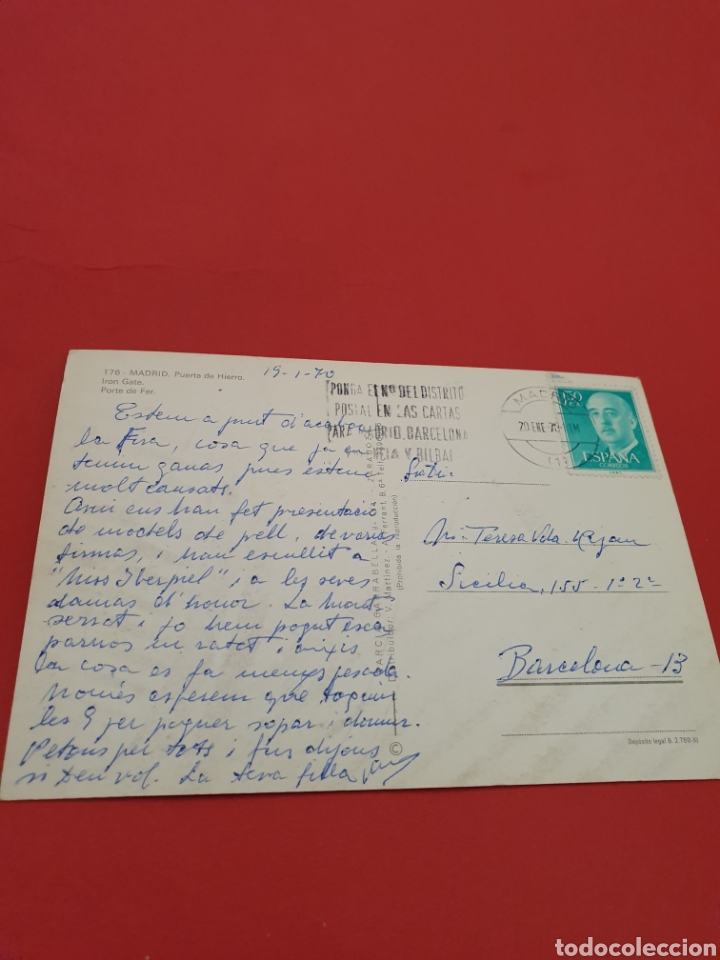 178 - MADRID. Puerta de Hierro.
Iron Gate.
Porte de Fer.
19-1-70
Estem a punt d'acabar
la Fira, cosa que ja en
tenim ganas pues estem
molt cansats.
Avui ens han fet presentació
de models de pell, de varias
firmas, i han escullit a
"Miss Iberpiel" i a les seves
damas d'honor. La Mont
serrat i jo hem pogut esca
parnos un ratet i aixís
la cosa es fa menys pesada.
Només esperem que toquin
les 9 per poguer sopar i dormir.
Petons per tots i fins dijous
si Deu vol. La teva filla
PONGA EL Nº DEL DISTRITO
POSTAL EN LAS CARTAS
PARA MADRID, BARCELONA
Y BILBAO
MADRID
20 ENE 70
ESPAÑA
CORREOS
GARCIA GARRABELLA
Distribuidor: V. Martínez -
(Prohibida la reproducción)
©
Sra:
Mª Teresa Vda.
Sicilia, 155 - 1º 2ª
Barcelona - 13
Depósito legal B. 2.769-XI
todocoleccion